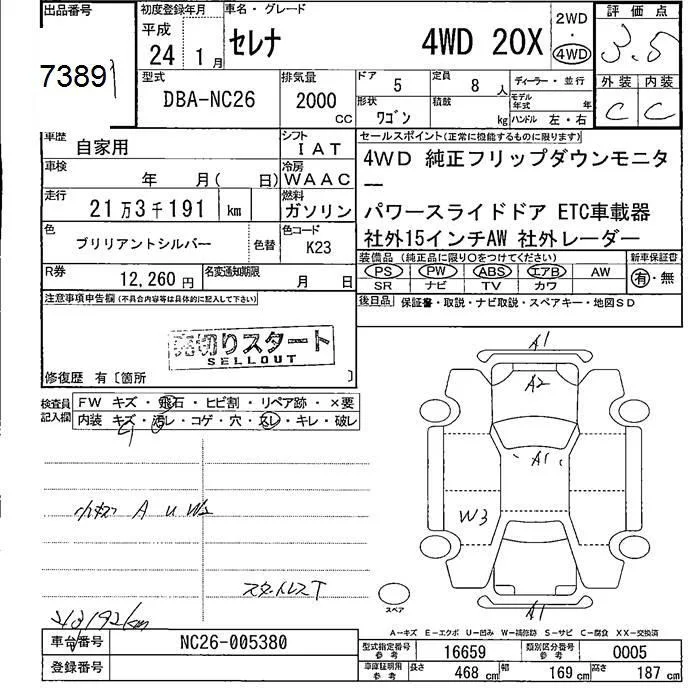 出品番号
73891
初度登録年月
平成
24 1月
車名・グレード
セレナ 4WD 20X
2WD
・
4WD
評価点
3.5
外装 内装
C C
型式
DBA-NC26
排気量
2000 cc
ドア 5
定員 8人
形状 ワゴン
積載 kg
ディーラー・並行
モデル年式 年
ハンドル 左・右
車歴 自家用
シフト IAT
車検 年 月( 日)
冷房 WAAC
走行 21万3千191 km
燃料 ガソリン
色 ブリリアントシルバー 色替
色コード K23
R券 12,260円
名変通知期限 月 日
セールスポイント(正常に機能するものに限ります)
4WD 純正フリップダウンモニタ
ー
パワースライドドア ETC車載器
社外15インチAW 社外レーダー
装備品(純正品に限り○をつけてください)
PS PW ABS エアB AW
SR ナビ TV カワ
新車保証書
有・無
後日品 保証書・取説・ナビ取説・スペアキー・地図SD
注意事項申告欄(不具合内容等は具体的に記入して下さい)
売切りスタート
SELLOUT
修復歴 有〔箇所 〕
検査員記入欄
FW キズ・飛石・ヒビ割・リペア跡・×要
内装 キズ・汚レ・コゲ・穴・スレ・キレ・破レ
小キズ A U W2
スタットレスT
213192km
A1
A2
A1
W3
A1
スペア
A-キズ E-エクボ U-凹み W-補修跡 S-サビ C-腐食 XX-交換済
車台番号 NC26-005380
登録番号
型式指定番号 参考 16659
類別区分番号 参考 0005
車庫証明用 参考 長さ 468cm 幅 169cm 高さ 187cm